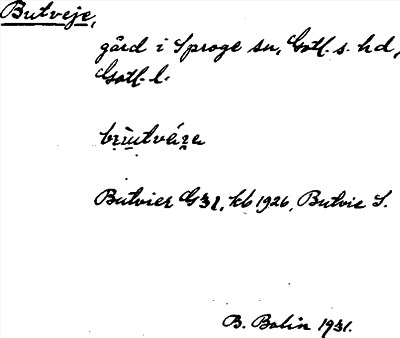 Butveje,
gård i Sproge sn, Gotl. s. hd,
Gotl. l.
Butvier G31, kb 1926, Butvie S.
B. Bolin 1931.